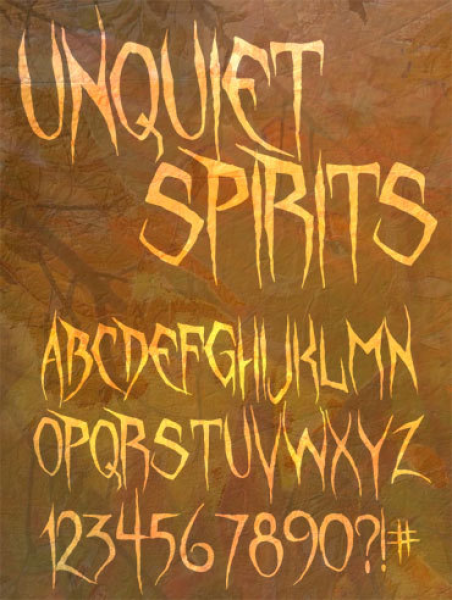 UNQUIET
SPIRITS
ABCDEFGHIJKLMN
OPQRSTUVWXYZ
1234567890?!#